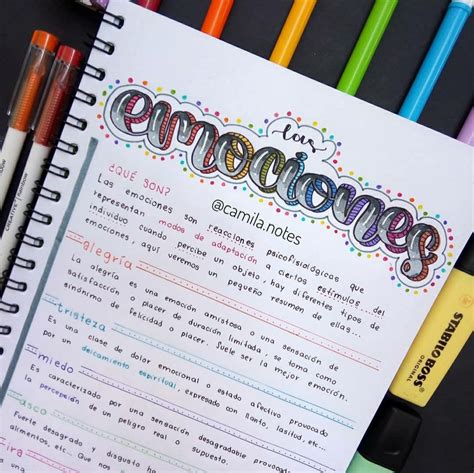 las
emociones
@camila.notes
¿QUÉ SON?
Las emociones son reacciones psicofisiológicas que
representan modos de adaptación a ciertos estímulos del
individuo cuando percibe un objeto, hay diferentes tipos de
emociones, aquí veremos un pequeño resumen de ellas...
alegría
La alegría es una emoción amistosa o una sensación de
satisfacción o placer de duración limitada, se toma como
sinónimo de felicidad o placer. Suele ser la mejor emoción.
tristeza
Es una clase de dolor emocional o estado afectivo provocado
por un decaimiento espiritual, expresado con llanto, lasitud, etc...
miedo
Es caracterizado por una sensación desagradable provocada
la percepción de un peligro real o supuesto.
asco
Fuerte desagrado y disgusto
alimentos, etc... Que nos
ira
STABILO BOSS
ORIGINAL